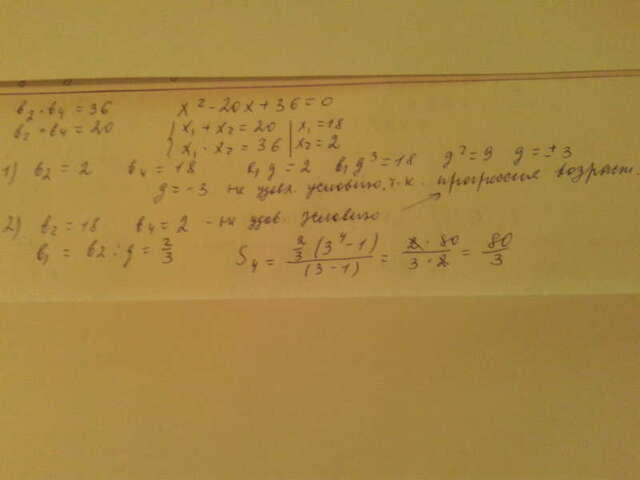 b₂ · b₄ = 36 x² - 20x + 36 = 0
b₂ + b₄ = 20 { x₁ + x₂ = 20 | x₁ = 18
x₁ · x₂ = 36 | x₂ = 2
1) b₂ = 2 b₄ = 18 b₁ g = 2 b₁ g³ = 18 g² = 9 g = ± 3
g = -3 не удовл. условию, т.к. прогрессия возраст.
2) b₂ = 18 b₄ = 2 - не удов. условию
b₁ = b2 : g = 2/3 S₄ = 2/3 (3⁴ - 1) / (3 - 1) = 2 · 80 / 3 · 2 = 80/3